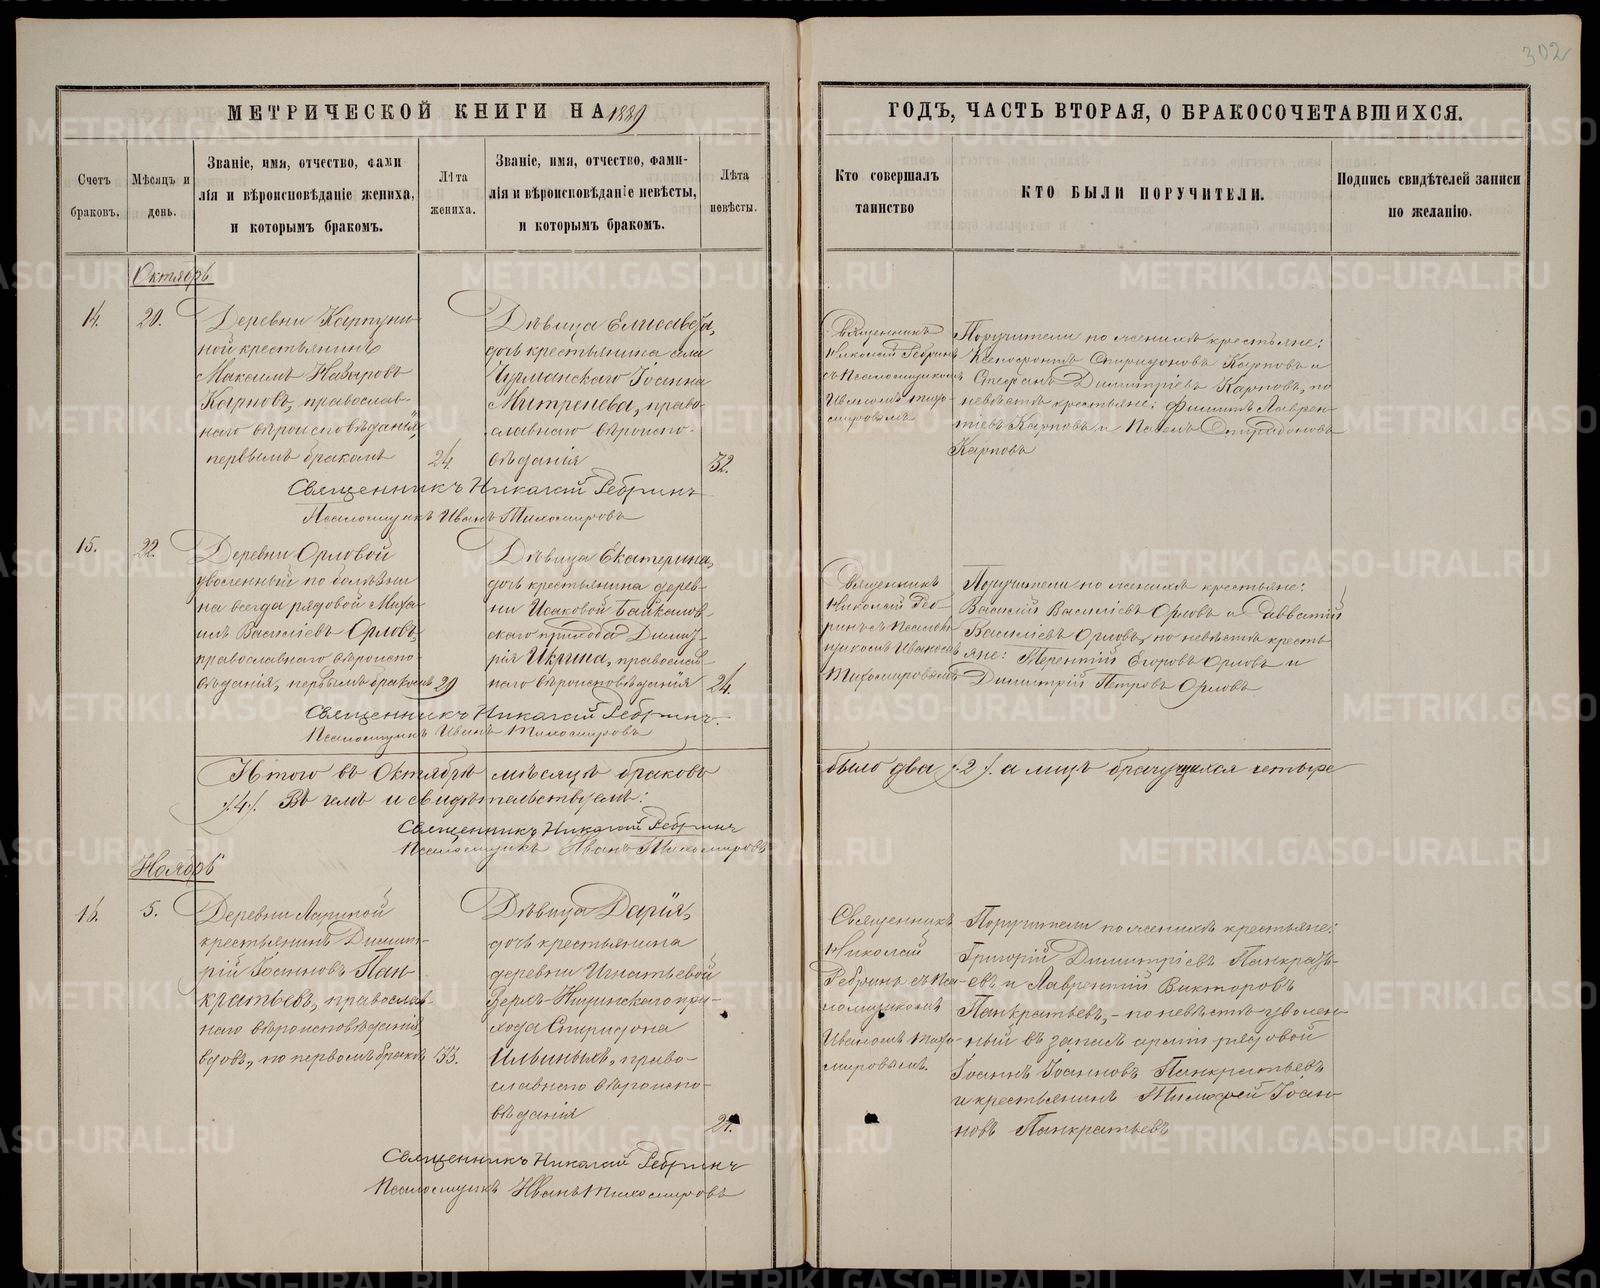 302
МЕТРИЧЕСКОЙ КНИГИ НА 1889
ГОДЪ, ЧАСТЬ ВТОРАЯ, О БРАКОСОЧЕТАВШИХСЯ.
Счетъ браковъ.
Мѣсяцъ и день.
Званіе, имя, отчество, фами-
лія и вѣроисповѣданіе жениха,
и которымъ бракомъ.
Лѣта
жениха.
Званіе, имя, отчество, фами-
лія и вѣроисповѣданіе невѣсты,
и которымъ бракомъ.
Лѣта
невѣсты.
Кто совершалъ
таинство
КТО БЫЛИ ПОРУЧИТЕЛИ.
Подпись свидѣтелей записи
по желанію.
Октябрь
14.
20.
Деревни Карпуни-
ной крестьянинъ
Максимъ Назаровъ
Карповъ, православ-
наго вѣроисповѣданія,
первымъ бракомъ
24
Дѣвица Елисавета,
дочь крестьянина села
Чурманскаго Іоанна
Митренева, право-
славнаго вѣроиспо-
вѣданія
32.
Священникъ
Николай Ребринъ
съ Псаломщикомъ
Иваномъ Тихо-
мировымъ
Поручители по женихѣ крестьяне:
Ксенофонтъ Спиридоновъ Карповъ и
Стефанъ Димитріевъ Карповъ, по
невѣстѣ крестьяне: Филиппъ Лаврен-
тіевъ Карповъ и Павелъ Спиридоновъ
Карповъ
Священникъ Николай Ребринъ
Псаломщикъ Иванъ Тихомировъ
15.
22.
Деревни Орловой
уволенный по болѣзни
на всегда рядовой Миха-
илъ Василіевъ Орловъ,
православнаго вѣроиспо-
вѣданія, первымъ бракомъ
29
Дѣвица Екатерина,
дочь крестьянина дерев-
ни Исаковой Байкалов-
скаго прихода Димит-
рія Икрина, православ-
наго вѣроисповѣданія
24.
Священникъ
Николай Реб-
ринъ съ Псалом-
щикомъ Иваномъ
Тихомировымъ
Поручители по женихѣ крестьяне:
Василій Василіевъ Орловъ и Савватій
Василіевъ Орловъ, по невѣстѣ кресть-
яне: Терентій Егоровъ Орловъ и
Димитрій Петровъ Орловъ
Священникъ Николай Ребринъ.
Псаломщикъ Иванъ Тихомировъ
Итого въ Октябрѣ мѣсяцѣ браковъ было два /2/. а лицъ брачущихся четыре
/4/. Въ чемъ и свидѣтельствуемъ:
Священникъ Николай Ребринъ
Псаломщикъ Иванъ Тихомировъ
Ноябрь
16.
5.
Деревни Лариной
крестьянинъ Димит-
рій Іоанновъ Пан-
кратьевъ, православ-
наго вѣроисповѣданія,
вдовъ, по первомъ бракѣ
33.
Дѣвица Дарія,
дочь крестьянина
деревни Игнатьевой
Верх-Ницинскаго при-
хода Спиридона
Ильиныхъ, право-
славнаго вѣроиспо-
вѣданія
Священникъ
Николай
Ребринъ съ Пса-
ломщикомъ
Иваномъ Тихо-
мировымъ.
Поручители по женихѣ крестьяне:
Григорій Димитріевъ Панкратъ-
евъ и Лаврентій Викторовъ
Панкратьевъ, - по невѣстѣ уволен-
ный въ запасъ арміи рядовой
Іоаннъ Іоанновъ Панкратьевъ
и крестьянинъ Тимофей Іоан-
новъ Панкратьевъ
Священникъ Николай Ребринъ
Псаломщикъ Иванъ Тихомировъ
METRIKI.GASO-URAL.RU